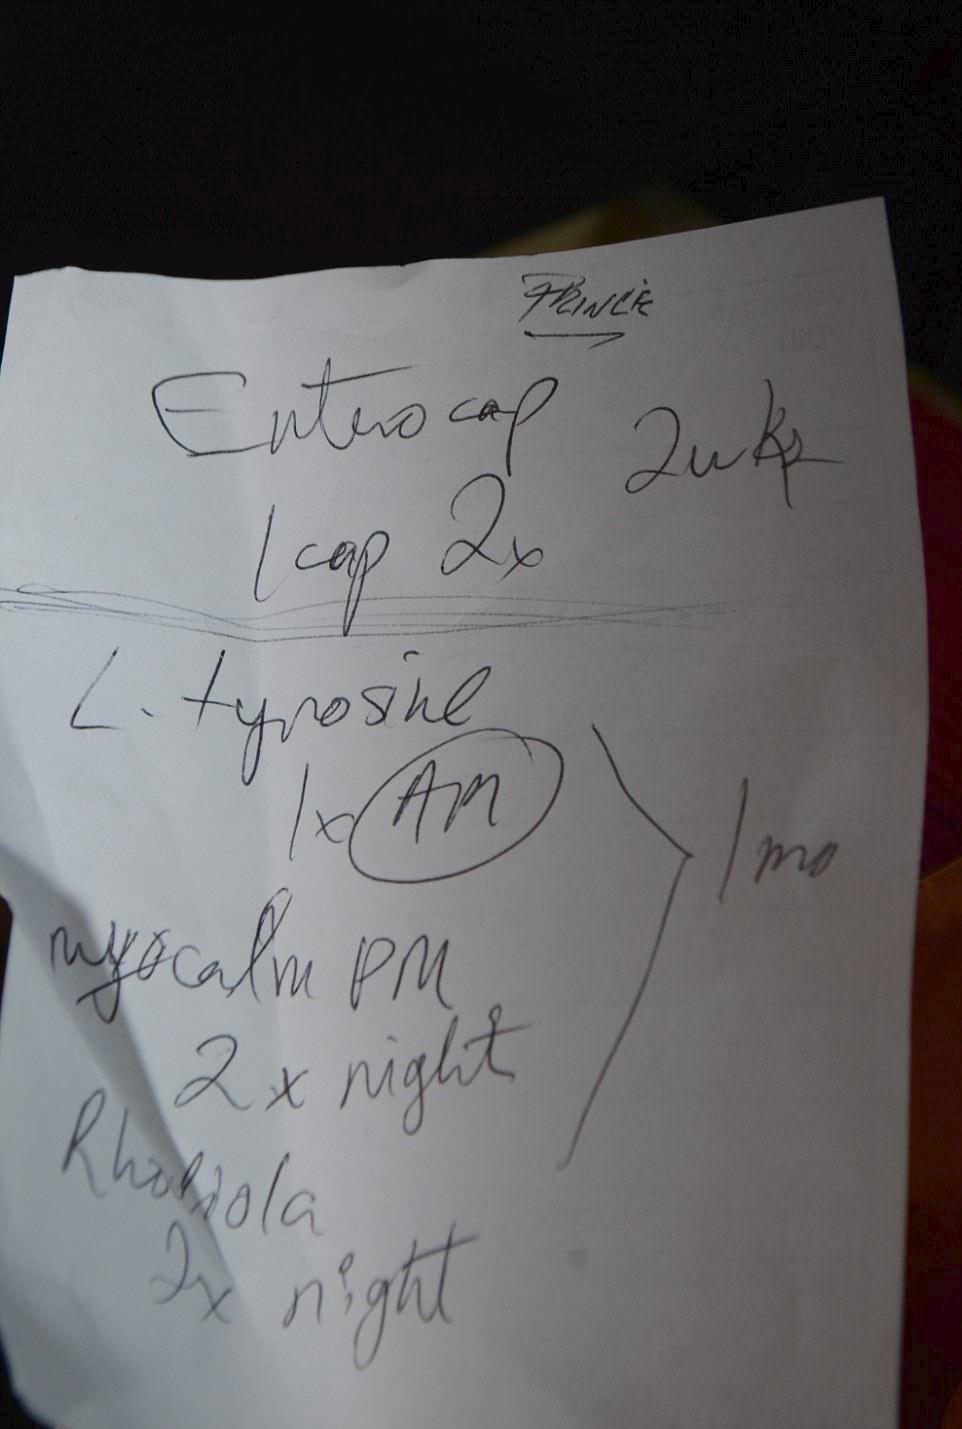 PRINCE
Enterocap 2wks
1 cap 2x
L. tyrosine
1x AM
1 mo
myocalm PM
2x night
Rhodiola
2x night